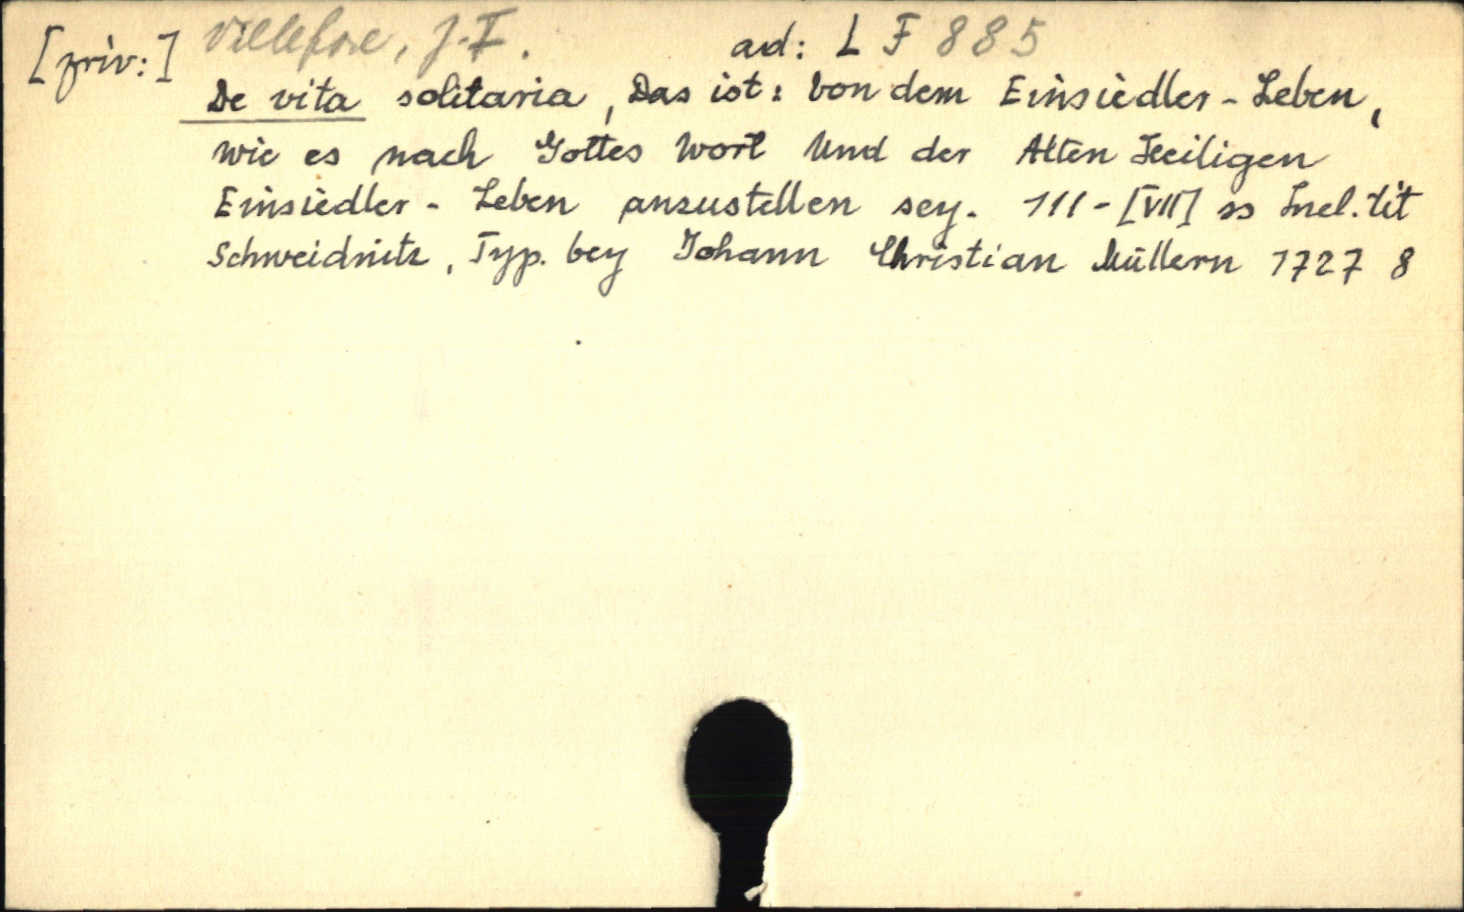 [priv:] Villefore, J. F. ad: L F 885
De vita solitaria, Das ist: Von dem Einsiedler-Leben,
wie es nach Gottes Wort Und der Alten Heiligen
Einsiedler-Leben anzustellen sey. 111-[VII] ss Incl. tit
Schweidnitz, Typ. bey Johann Christian Müllern 1727 8